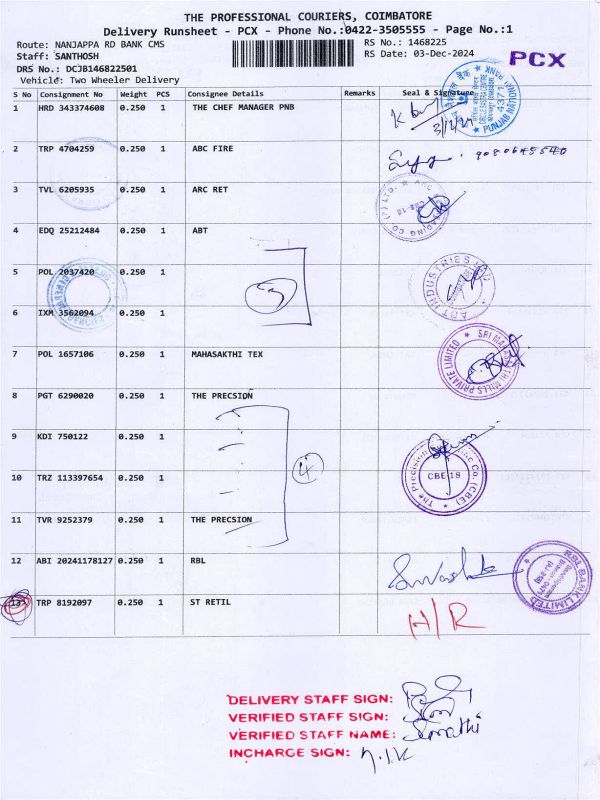 THE PROFESSIONAL COURIERS, COIMBATORE
Delivery Runsheet - PCX - Phone No.:0422-3505555 - Page No.:1
Route: NANJAPPA RD BANK CMS
RS No.: 1468225
Staff: SANTHOSH
RS Date: 03-Dec-2024
PCX
DRS No.: DCJB146822501
Vehicle: Two Wheeler Delivery
S No Consignment No Weight PCS Consignee Details Remarks Seal & Signature
1 HRD 343374608 0.250 1 THE CHEF MANAGER PNB
3/12/24
PUNJAB NATIONAL BANK
4371
2 TRP 4704259 0.250 1 ABC FIRE
3 TVL 6205935 0.250 1 ARC RET
CBE-18
4 EDQ 25212484 0.250 1 ABT
5 POL 2037420 0.250 1
3
ABT INDUSTRIES
6 IXM 3562094 0.250 1
7 POL 1657106 0.250 1 MAHASAKTHI TEX
MILLS PRIVATE LIMITED
8 PGT 6290020 0.250 1 THE PRECSION
9 KDI 750122 0.250 1
4
10 TRZ 113397654 0.250 1
The Precision
Co. (CBE)
CBE-18
11 TVR 9252379 0.250 1 THE PRECSION
12 ABI 20241178127 0.250 1 RBL
RBL BANK LIMITED
13 TRP 8192097 0.250 1 ST RETIL
H/R
DELIVERY STAFF SIGN:
VERIFIED STAFF SIGN:
VERIFIED STAFF NAME:
INCHARGE SIGN: